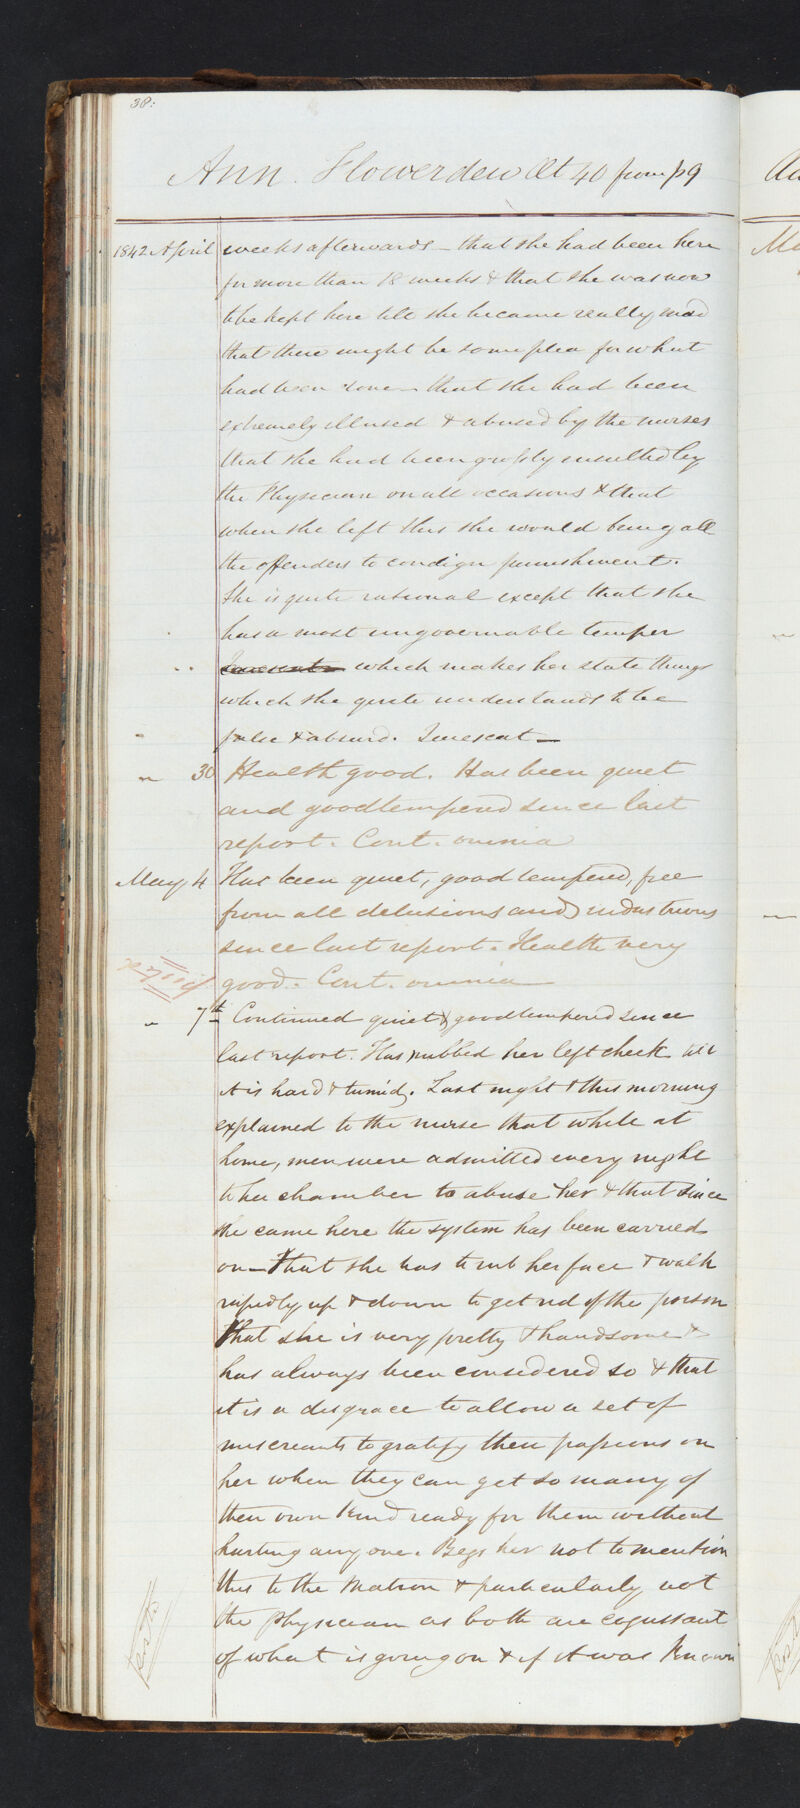 38.
Ann. Flowerdew Æt 40 from p9
1842 April weeks afterwards – that she had been here
for more than 18 weeks & that she was now
to be kept here till she became really mad
that there might be some plea for what
had been done – that she had been
extremely illused & abused by the nurses
that she had been grossly insulted by
the Physician on all occasions & that
when she left this she would bring all
the offenders to condign punishment.
She is quite rational except that she
has a most ungovernable temper
which makes her state things
which she quite understands to be
false & absurd. Quiescat –
" 30 Health good. Has been quiet
and goodtempered since last
report. Cont. omnia
May 4 Has been quiet, good tempered, free
from all delusions and industrious
since last report. Health very
good. Cont. omnia
" 7th Continued quiet & goodtempered since
last report. Has rubbed her left cheek till
it is hard & tumid. Last night & this morning
explained to the nurse that while at
home, men were admitted every night
to her chamber to abuse her & that since
she came here the system has been carried
on – that she has to rub her face & walk
rapidly up & down to get rid of the poison
that she is very pretty & handsome &
has always been considered so & that
it is a disgrace to allow a set of
miscreants to gratify their passions on
her when they can get so many of
their own kind ready for them without
hurting any one. Begs her not to mention
this to the Matron & particularly not
the Physician as both are cognisant
of what is going on & if it was known